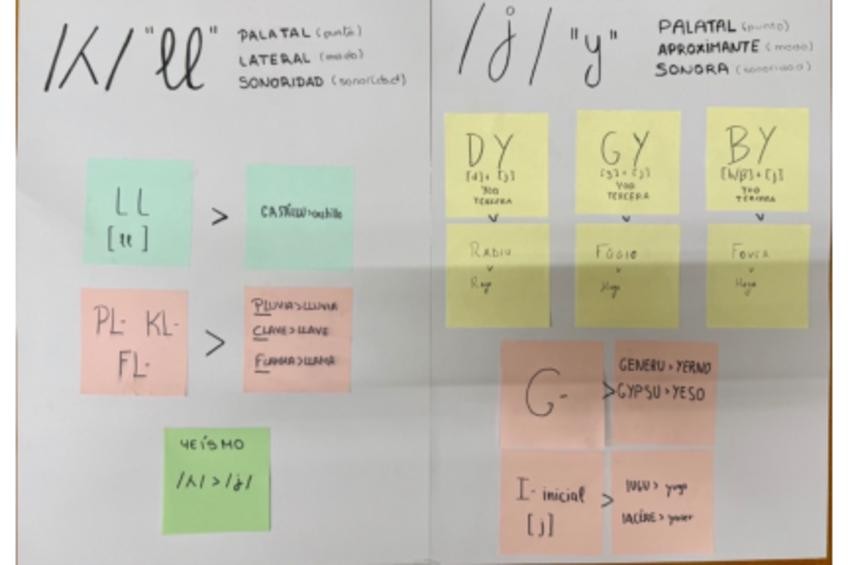 /ʎ/ "ll"
PALATAL (punto)
LATERAL (modo)
SONORIDAD (sonoridad)
LL
[ll]
>
CASTĔLLU>castillo
PL- KL-
FL-
>
PLUVIA>LLUVIA
CLAVE>LLAVE
FLAMMA>LLAMA
YEÍSMO
/ʎ/>/j/
/j/ "y"
PALATAL (punto)
APROXIMANTE (modo)
SONORA (sonoridad)
DY
[d]+[j]
YOD
TERCERA
RADIU
GY
[g]+[j]
YOD
TERCERA
BY
[b/β]+[j]
YOD
TERCERA
FOVEA
Hoya
G-
>
GENERU>YERNO
GYPSU>YESO
I- inicial
[j]
>
IUGU> yugo
IACĒRE> yacer